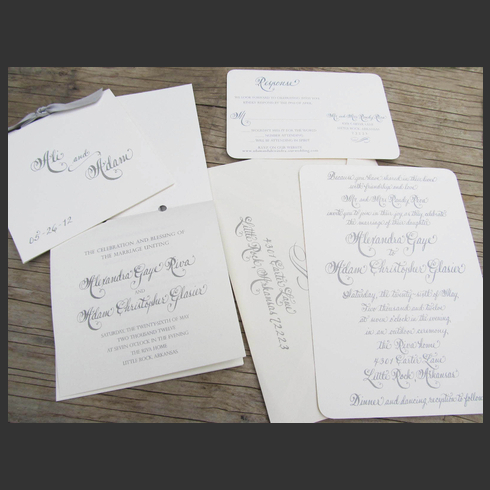 Ali and Adam
05-26-12
THE CELEBRATION AND BLESSING OF
THE MARRIAGE UNITING
Alexandra Gaye Riva
AND
Adam Christopher Glasier
SATURDAY, THE TWENTY-SIXTH OF MAY
TWO THOUSAND TWELVE
AT SEVEN O'CLOCK IN THE EVENING
THE RIVA HOME
LITTLE ROCK, ARKANSAS
Response
M
4301 Ester Lane
Little Rock, Arkansas
72223
Because you have shared in their lives
with friendship and love
Mr. and Mrs. Randy Riva
invite you to join in their joy as they celebrate
the marriage of their daughter
Alexandra Gaye
to
Adam Christopher Glasier
Saturday, the twenty-sixth of May
Two thousand and twelve
at seven o'clock in the evening
in an outdoor ceremony.
the Riva home
4301 Ester Lane
Little Rock, Arkansas
Dinner and dancing reception to follow